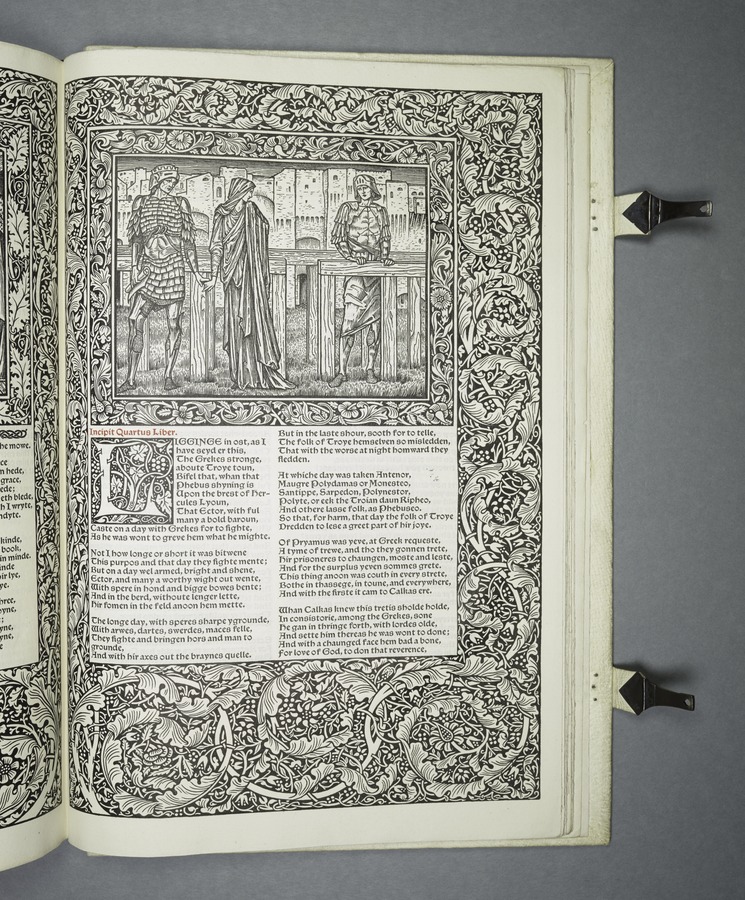 he mowe.
ce
n hede,
grace,
ede:
eth blede.
h I wryte,
ndyte.
kinde,
book,
in minde.
inde
ir lye,
ye.
hree,
oyne,
;
yne,
yne,
e
Incipit Quartus Liber.
LIGGINGE in ost, as I
have seyd er this,
The Grekes stronge,
aboute Troye toun,
Bifel that, whan that
Phebus shyning is
Upon the brest of Her-
cules Lyoun,
That Ector, with ful
many a bold baroun,
Caste on a day with Grekes for to fighte,
As he was wont to greve hem what he mighte.
Not I how longe or short it was bitwene
This purpos and that day they fighte mente;
But on a day wel armed, bright and shene,
Ector, and many a worthy wight out wente,
With spere in hond and bigge bowes bente;
And in the berd, withoute lenger lette,
Hir fomen in the feld anoon hem mette.
The longe day, with speres sharpe ygrounde,
With arwes, dartes, swerdes, maces felle,
They fighte and bringen hors and man to
grounde,
And with hir axes out the braynes quelle.
But in the laste shour, sooth for to telle,
The folk of Troye hemselven so misledden,
That with the worse at night homward they
fledden.
At whiche day was taken Antenor,
Maugre Polydamas or Monesteo,
Santippe, Sarpedon, Polynestor,
Polyte, or eek the Troian daun Ripheo,
And othere lasse folk, as Phebuseo.
So that, for harm, that day the folk of Troye
Dredden to lese a greet part of hir joye.
Of Pryamus was yeve, at Greek requeste,
A tyme of trewe, and tho they gonnen trete,
Hir prisoneres to chaungen, moste and leste,
And for the surplus yeven sommes grete.
This thing anoon was couth in every strete,
Bothe in thassege, in toune, and everywhere,
And with the firste it cam to Calkas ere.
Whan Calkas knew this tretis sholde holde,
In consistorie, among the Grekes, sone
He gan in thringe forth, with lordes olde,
And sette him thereas he was wont to done;
And with a chaunged face hem bad a bone,
For love of God, to don that reverence,